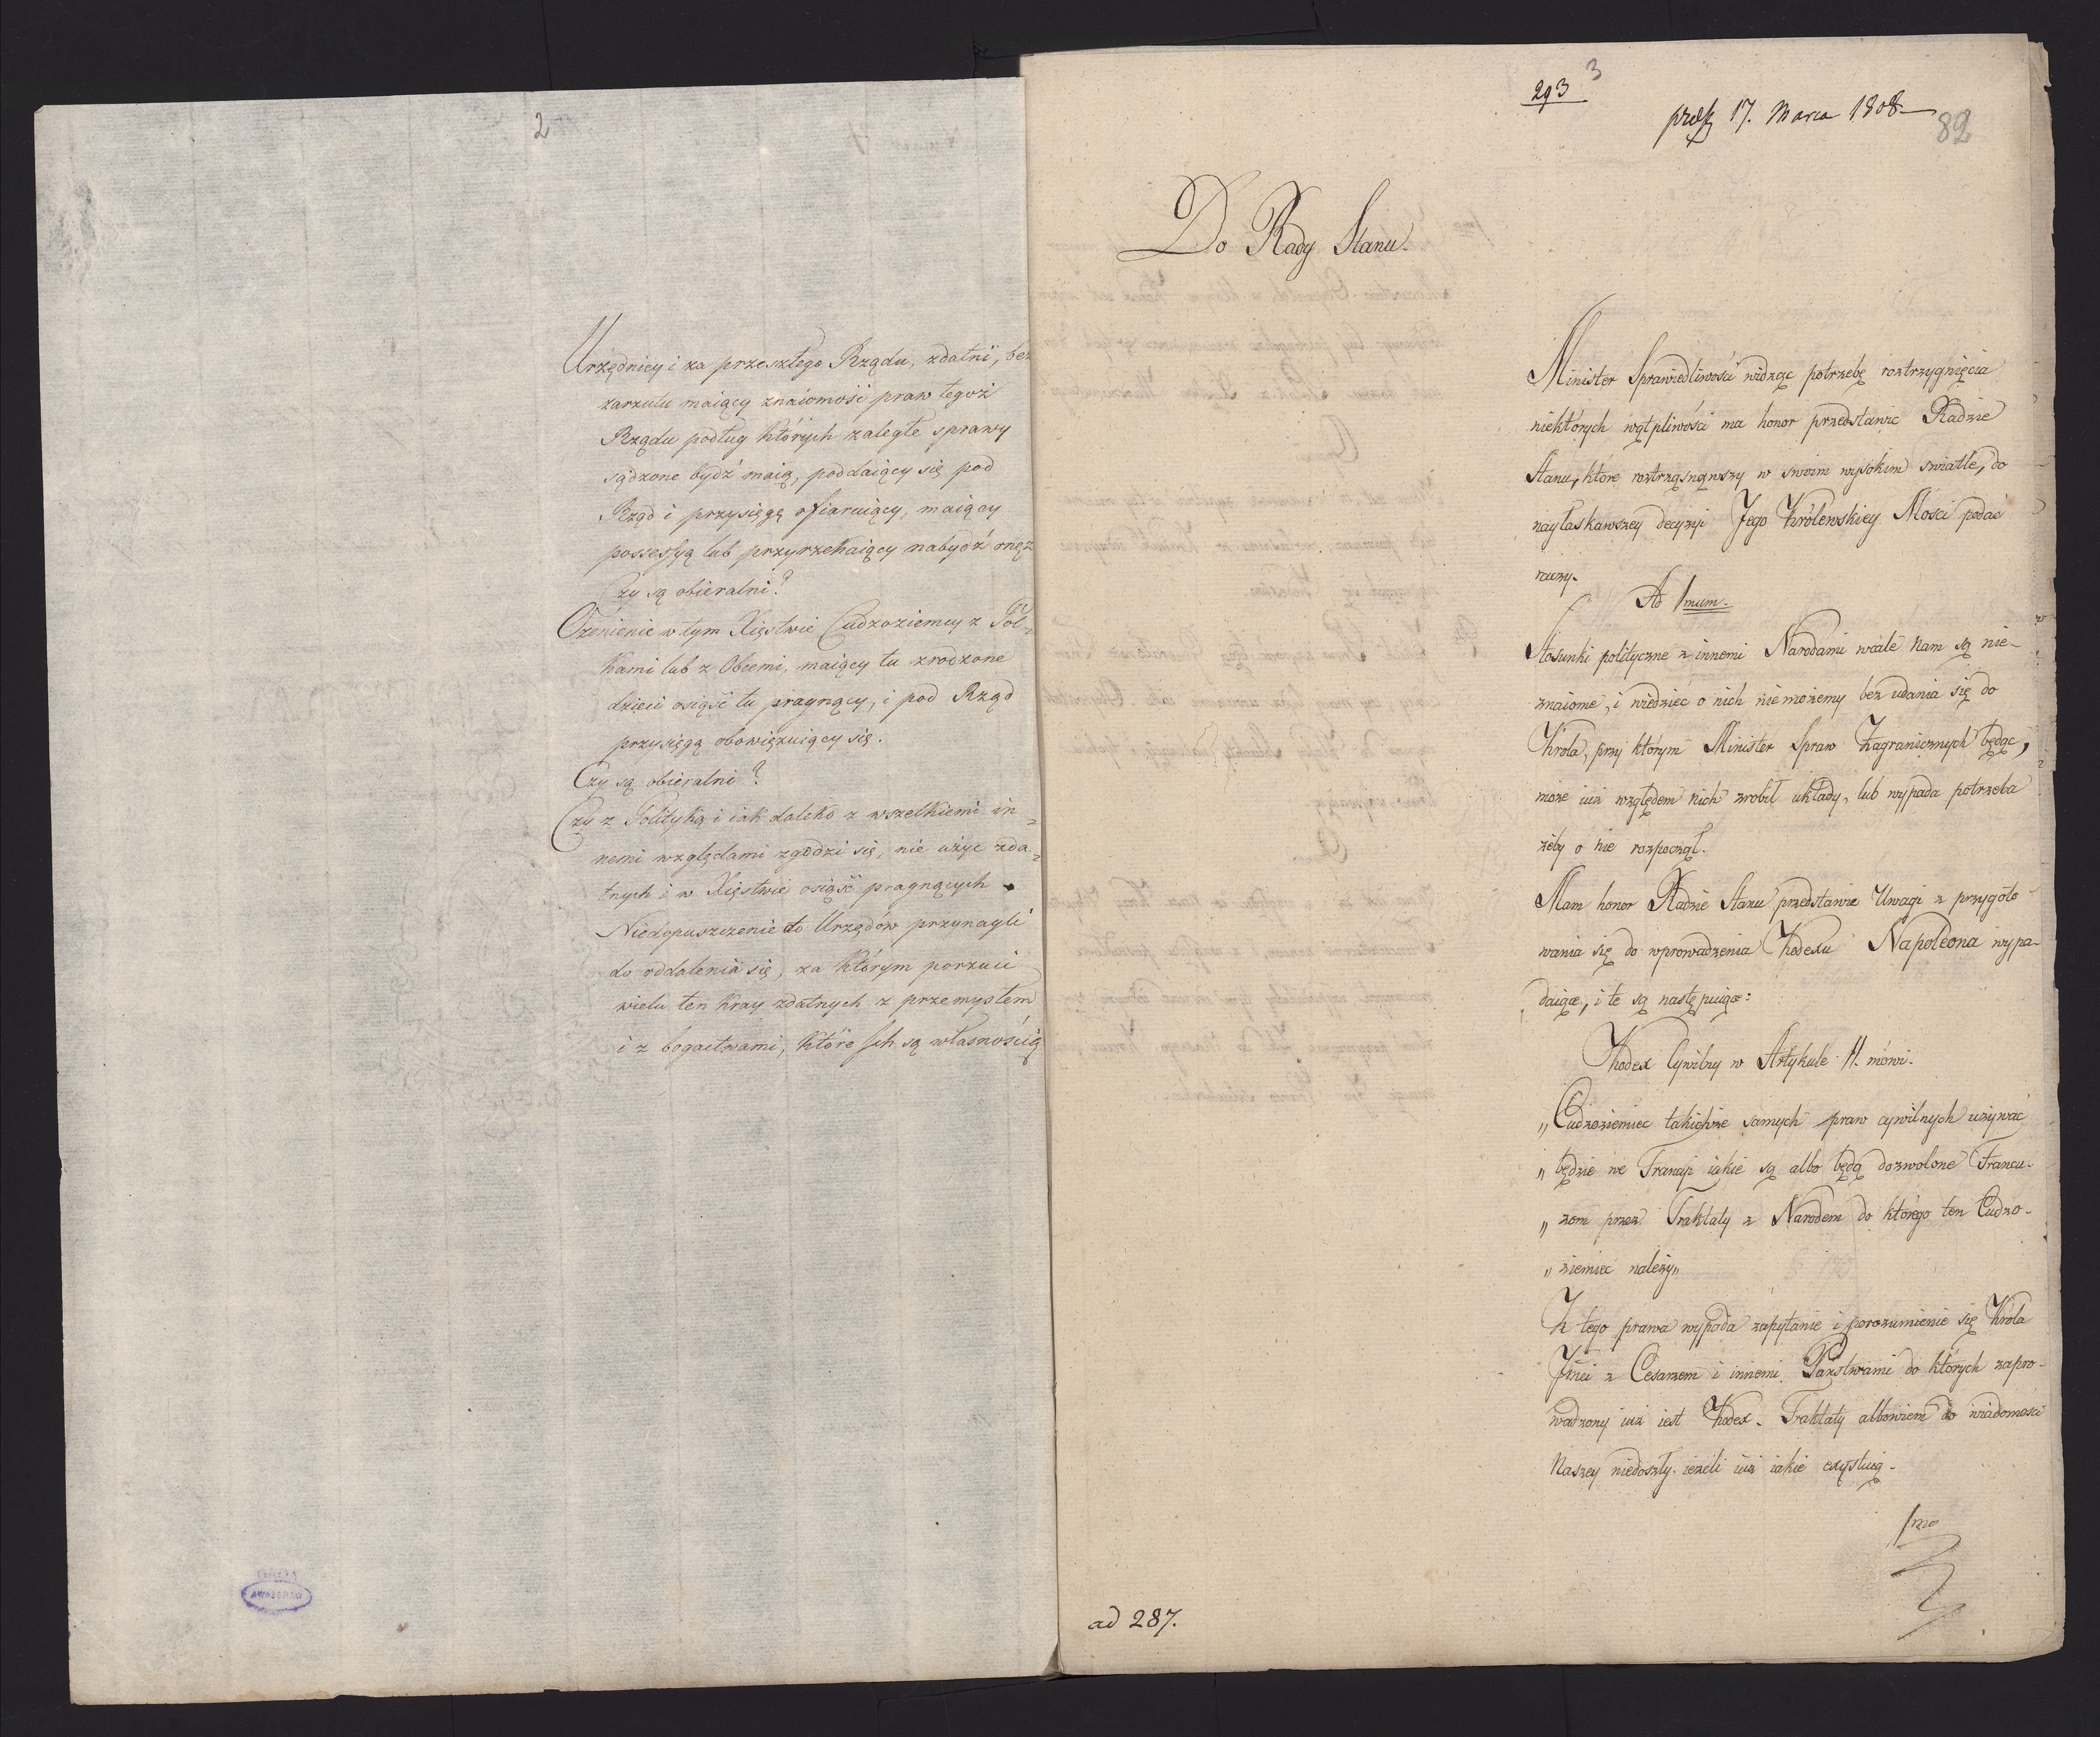 2
Urzędnicy i za przeszłego Rządu, zdatni, bez
zarzutu maiący znaiomość praw tegoż
Rządu podług których zaległe sprawy
sądzone bydź maią, poddaiący się pod
Rząd i przysięgę ofiaruiący, maiący
possessyą lub przyrzekaiący nabydź onęż
Czy są obieralni?
Ożenienie w tym Xięstwie Cudzoziemcy z Pol=
kami lub z Obcemi, maiący tu zrodzone
dzieci osiąść tu pragnący, i pod Rząd
przysięgą obowięzuiący się.
Czy są obieralni?
Czy z Polityką i iak daleko z wszelkiemi in=
nemi względami zgodzi się, nie użyć zda=
tnych i w Xięstwie osiąść pragnących
Niedopuszczenie do Urzędów przynagli
do oddalenia się, za którym porzuci
wielu ten kray zdatnych z przemysłem
i z bogactwami, które Ich są własnością
293
3
17. Marca 1808
82
Do Rady Stanu.
Minister Sprawiedliwości widząc potrzebę roztrzygnięcia
niektórych wątpliwości ma honor przedstawić Radzie
Stanu, które roztrząsnąwszy w swoim wysokim świetle, do
nayłaskawszey decyzyi Jego Królewskiey Mości podać
raczy.
Ad 1mum.
Stosunki polityczne z innemi Narodami wcale Nam są nie-
znaiome, i wiedzieć o nich nie możemy bez udania się do
Króla, przy którym Minister Spraw Zagranicznych będąc,
może iuż względem nich zrobił układy, lub wypada potrzeba
żeby o nie rozpoczął.
Mam honor Radzie Stanu przedstawić Uwagi z przygoto-
wania się do wprowadzenia Kodexu Napoleona wypa-
daiące, i te są następuiące:
Kodex Cywilny w Artykule 11. mówi.
„Cudzoziemiec takichże samych praw cywilnych używać
„będzie we Francyi iakie są albo będą dozwolone Francu-
„zom przez Traktaty z Narodem do którego ten Cudzo-
„ziemiec należy„
Z tego prawa wypada zapytanie i porozumienie się Króla
Jmci z Cesarzem i innemi Państwami do których zapro-
wadzony iuż iest Kodex. Traktaty albowiem do wiadomości
Naszey niedoszły. ieżeli iuż iakie exystuią.
1mo
ad 287.